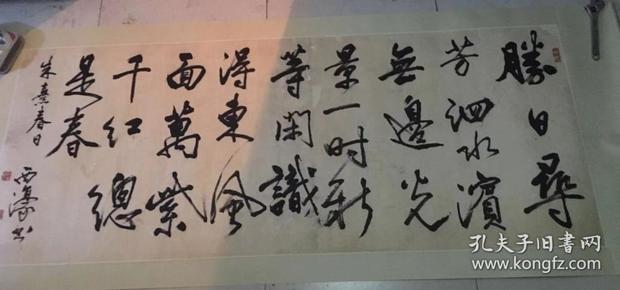 勝日尋
芳泗水濱
無邊光
景一时新
等閑識
得東風
面萬紫
千红總
是春
朱熹春日
西濠书
孔夫子旧書网
kongfz.com